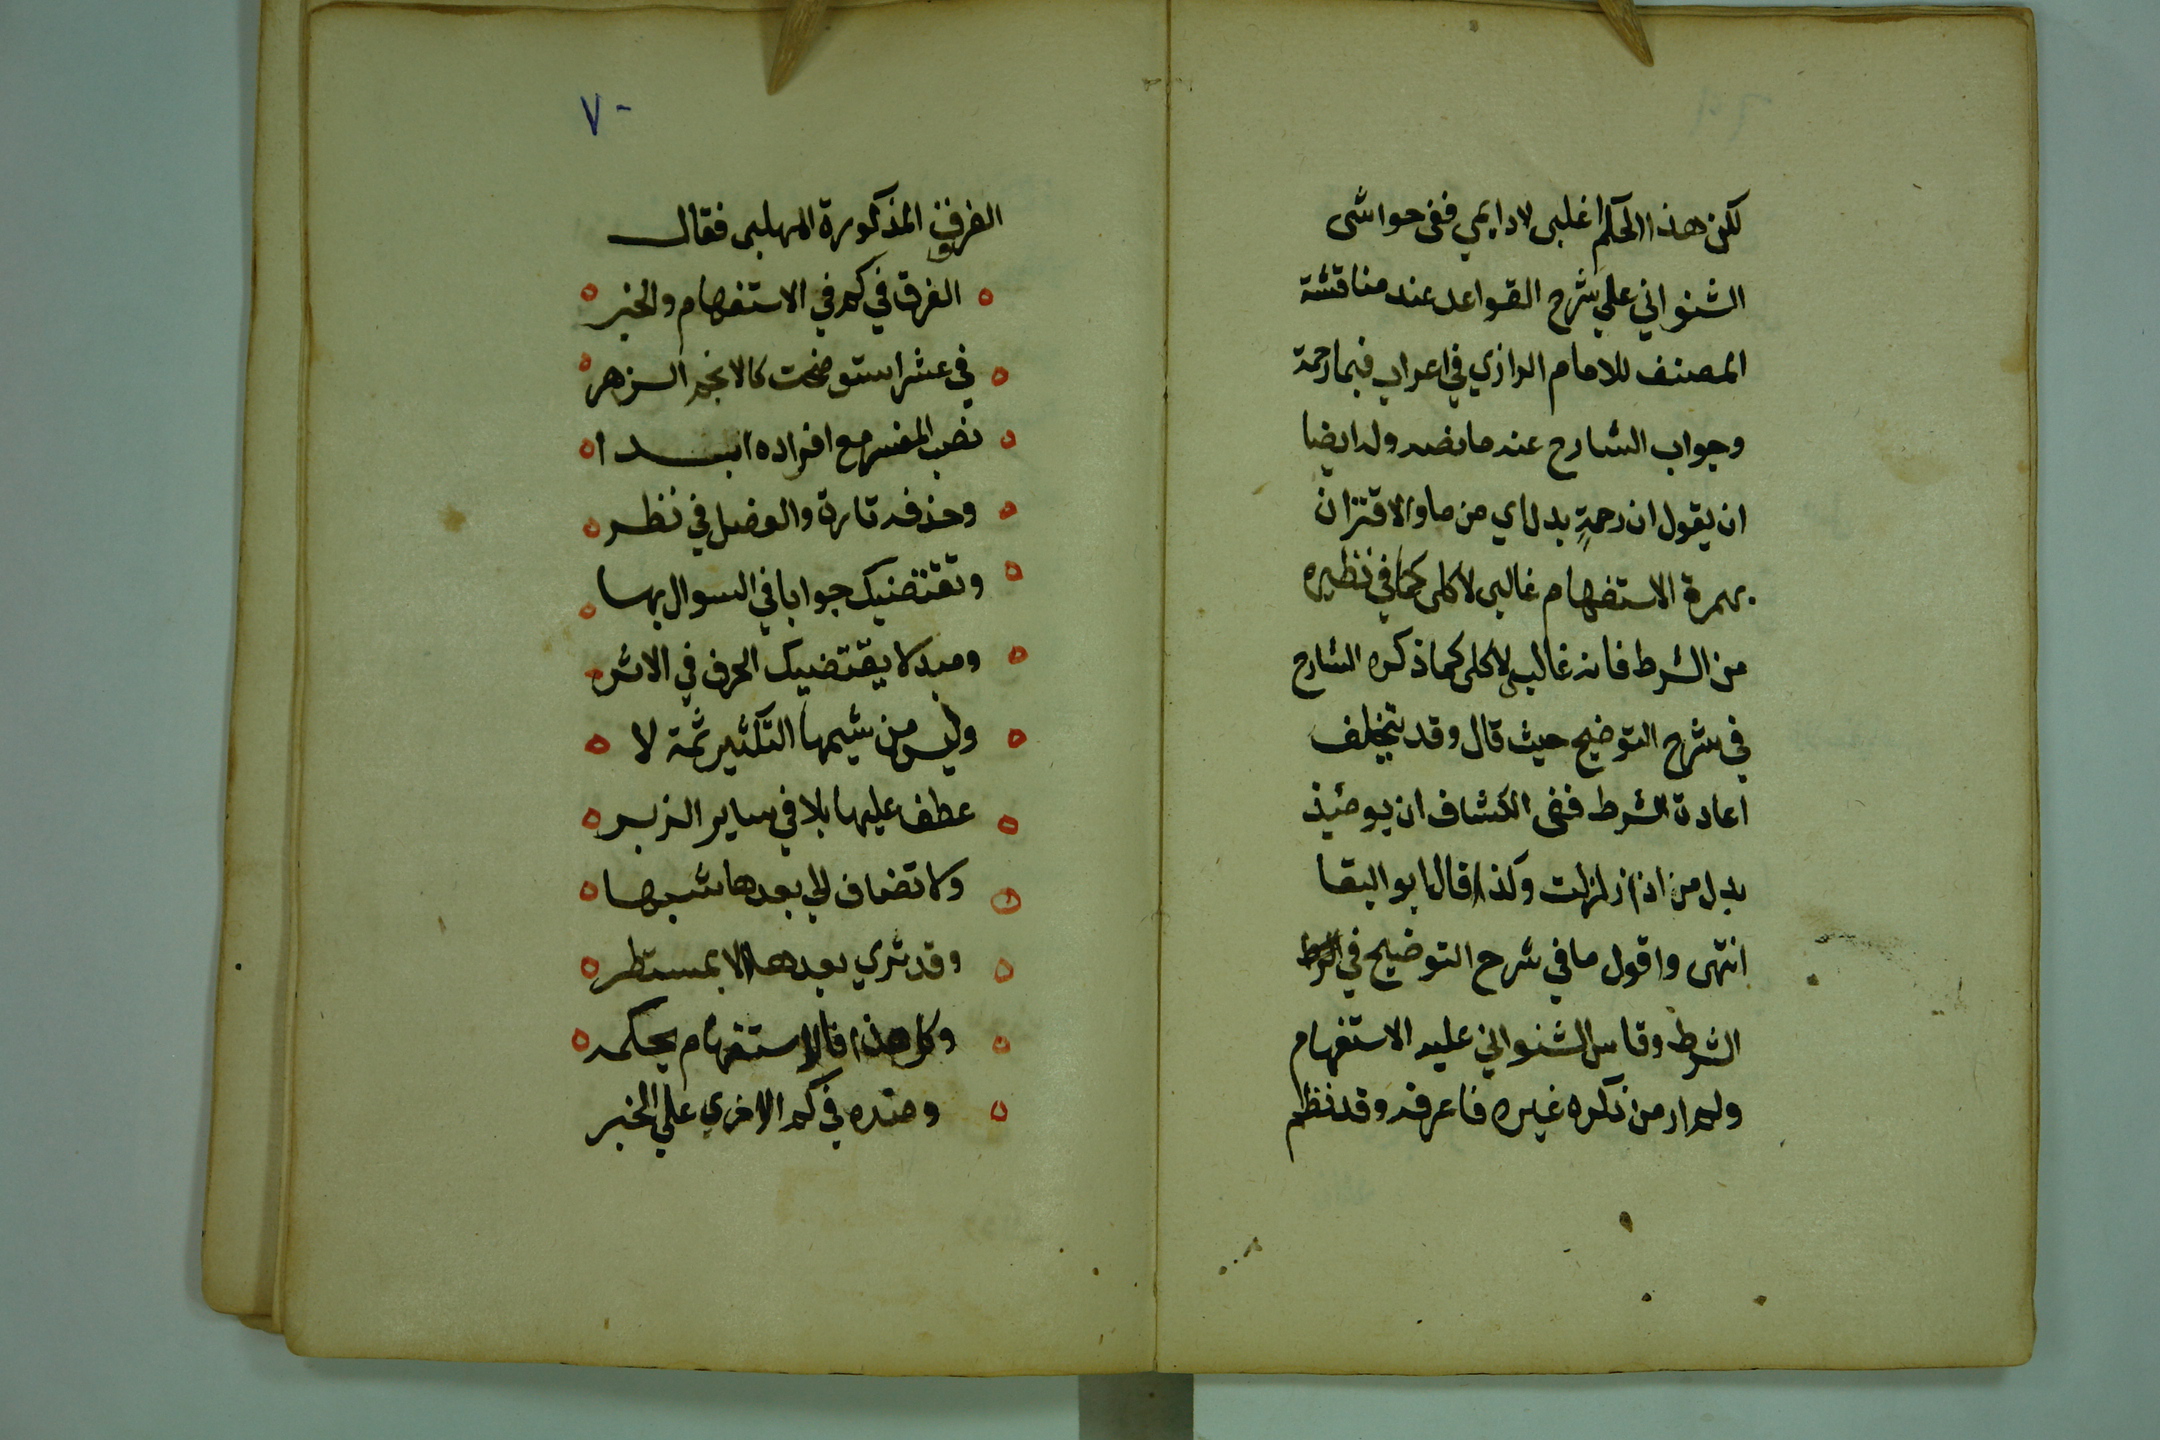 لكن هذا الحكم اغلبى لا دايمي ففى حواشى
الشنواني علي شرح القواعد عند مناقشة
المصنف للامام الرازي في اعراب فبما رحمة
وجواب الشارح عنه ما نصه وله ايضا
ان يقول ان رحمةٍ بدل اي من ما والاقتران
بهمزة الاستفهام غالبى لا كلى كما في نظيره
من الشرط فانه غالبى لا كلى كما ذكره الشارح
في شرح التوضيح حيث قال وقد تتخلف
اعادة الشرط ففى الكشاف ان يومئيذ
بدل من اذا زلزلت وكذا قال ابو البقا
انتهى واقول ما في شرح التوضيح في
الشرط وقاس الشنواني عليه الاستفهام
ولم ار من ذكره غيره فاعرفه وقد نظم
٧٠
الفروق المذكورة المهلبى فقال
الفرق في كم في الاستفهام والخبر
في عشر استوضحت كالانجم الزهر
نصب المفسر مع افراده ابدا
وحذفه تارة والفصل في نظر
وتقتضيك جوابا في السوال بها
ومبدلا يقتضيك الحرف في الاثر
وليس من شيمها التكثير ثمة لا
عطف عليها بلا في ساير الزبر
ولا تضاف الي بعدها شبها
وقد تري بعدها الا بمستطر
وكل هذا فالاستفهام يحكمه
وضده في كم الاخري علي الخبر